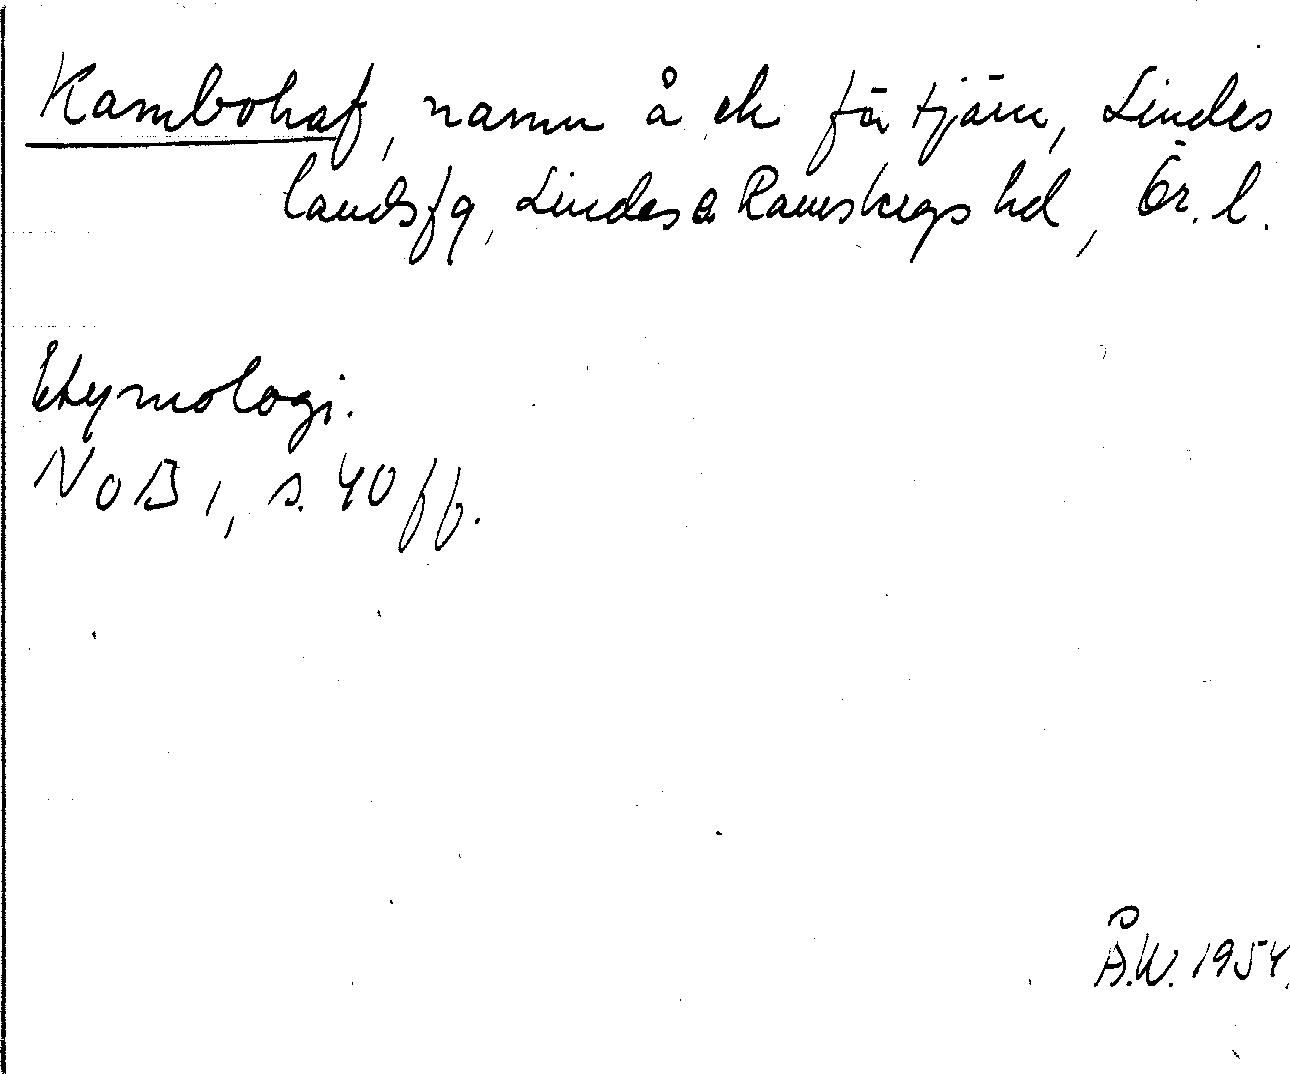 Kambohaf, namn å ek för tjärn, Lindes
landsfg, Lindes o Ramsbergs hd, Ör. l.
Etymologi.
NoB 1, s. 40 ff.
Å.W. 1954.